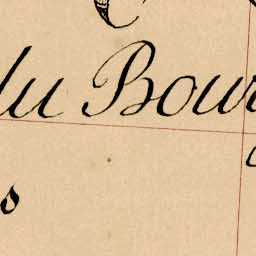 du Bour
s